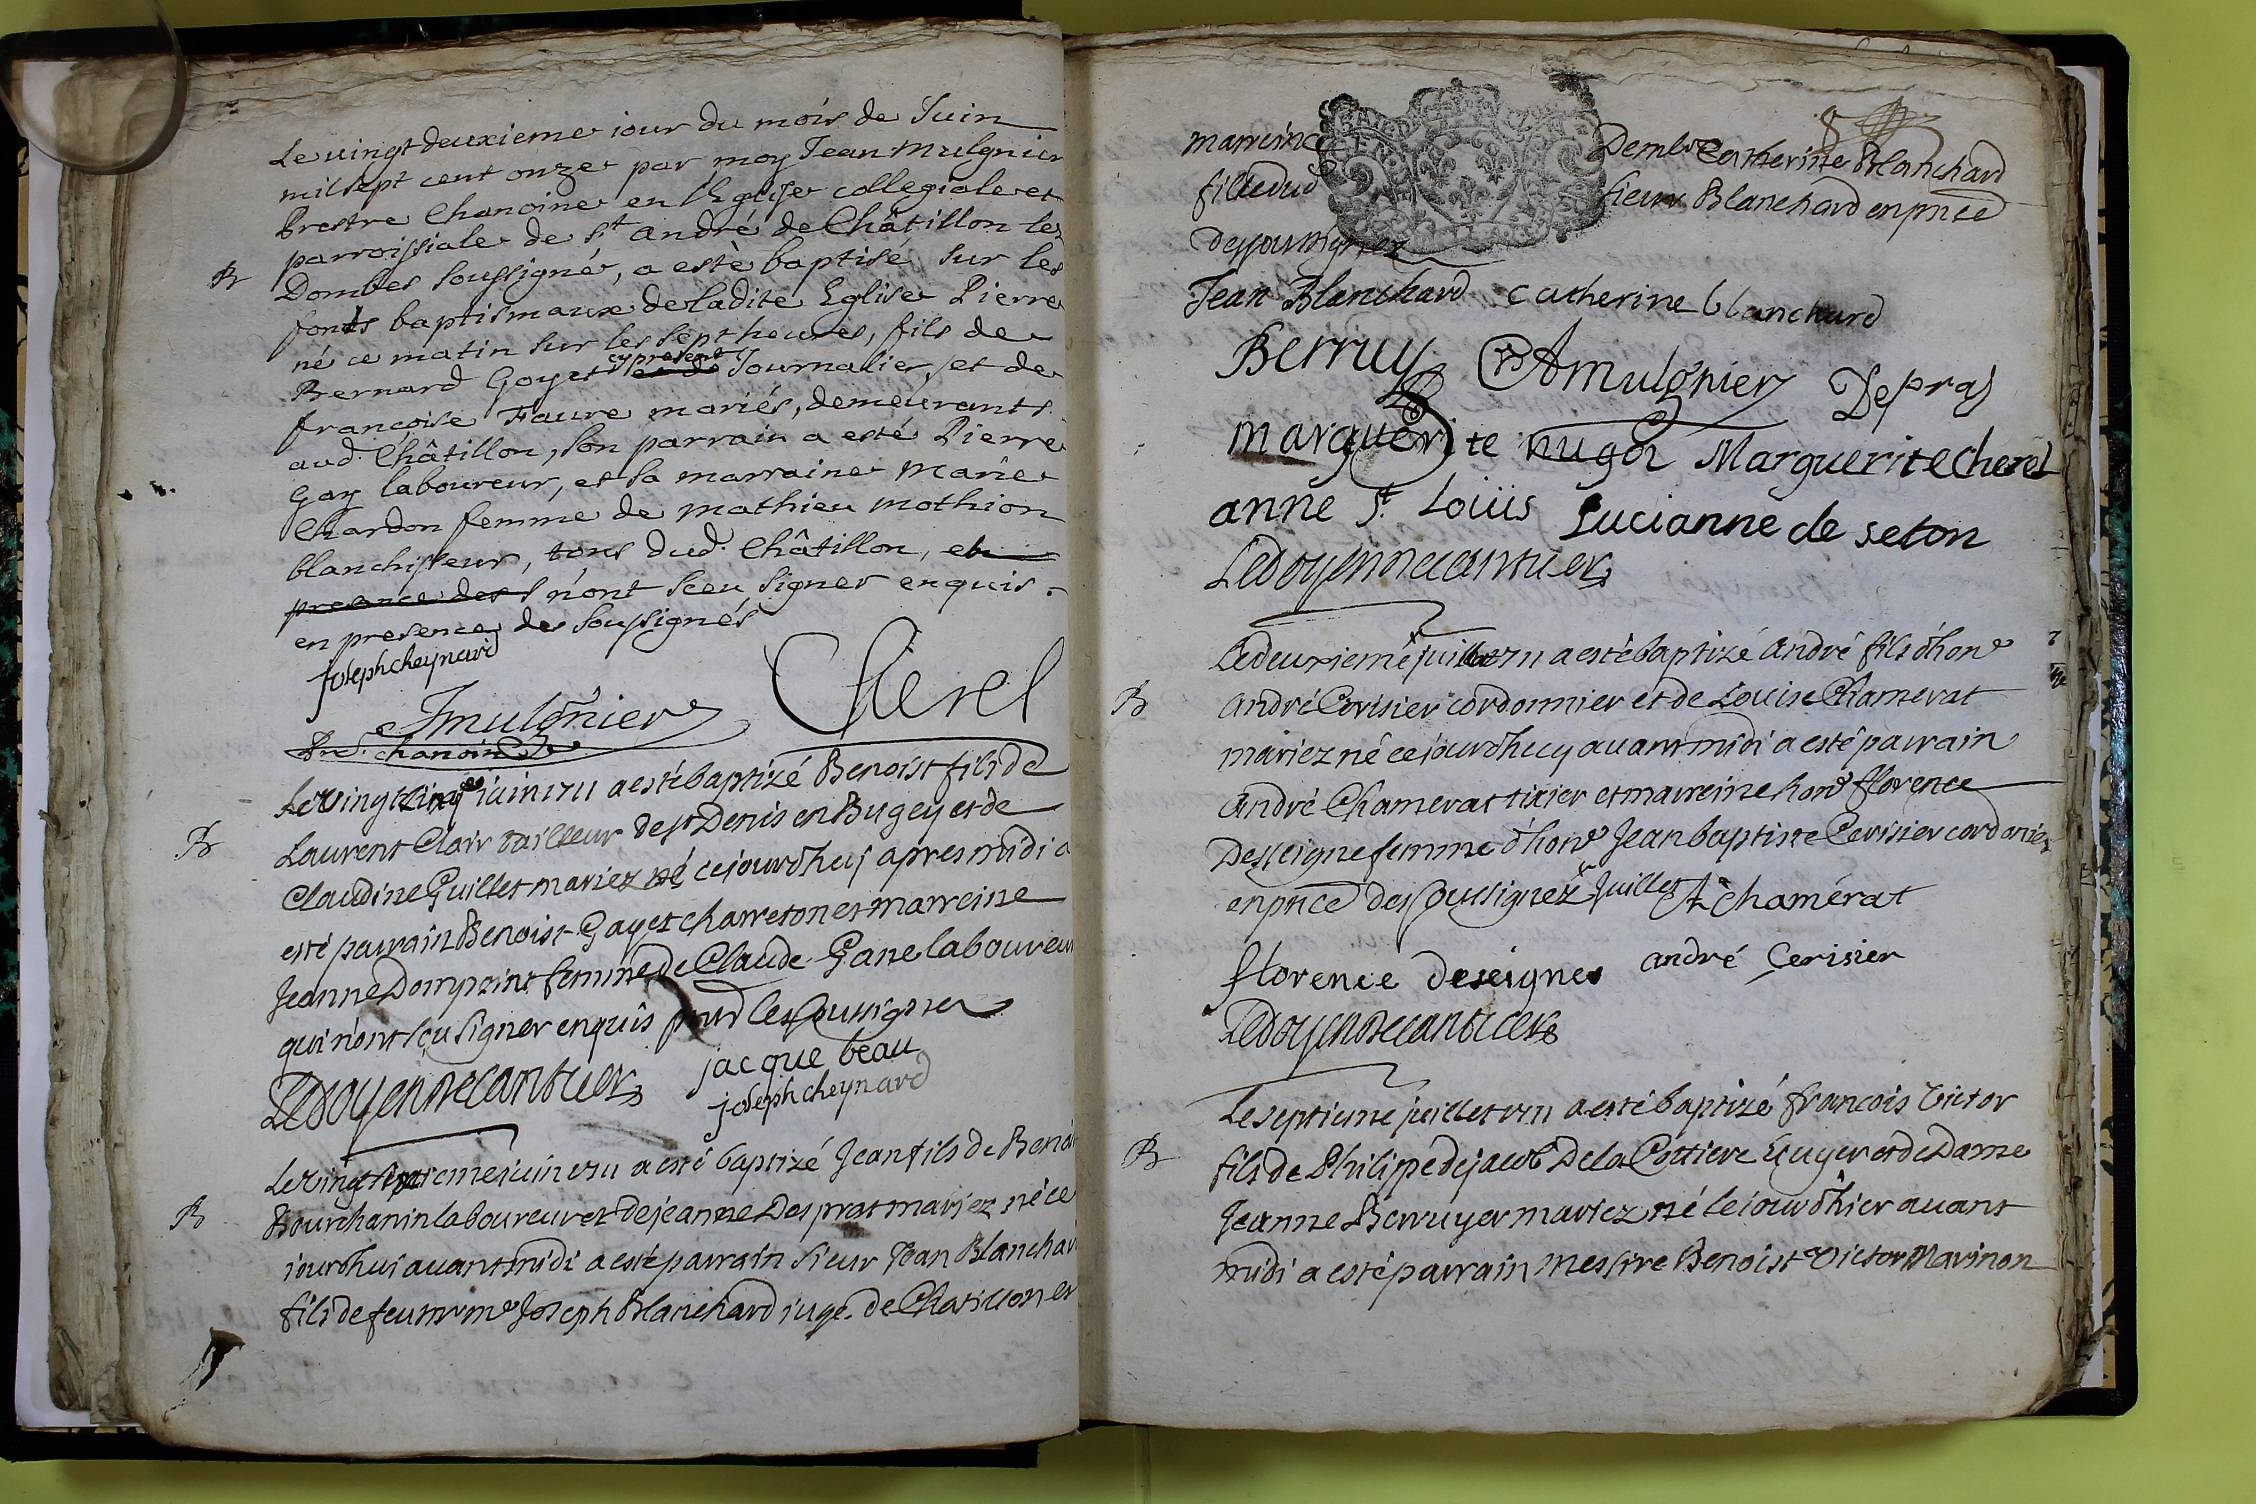 Le vingt deuxieme iour du mois de Juin
mil sept cent onze par moy Jean Mulgnier
Prestre Chanoine en l'Eglise collegiale et
parroissiale de St André de Châtillon les
B
Dombes soussigné, a estè baptisé sur les
fonts baptismaux de ladite Eglise Pierre
né ce matin sur les sept heures, fils de
Bernard Goyet cy present et de Journalier, et de
francoise Faure mariés, demeurants
aud. Châtillon, son parrain a esté Pierre
Gay laboureur, et sa marraine Marie
Chardon femme de mathieu mothion
blanchisseur, tous dud. Châtillon, en
presence des n'ont sceu signer enquis.
en presence des soussignés
joseph cheynard
Cherel
Jmulgnier
Pre. chanoine
Le vingt cinq juin 1711 a esté baptizé Benoist fils de
B
Laurent Clair tailleur de St Denis en Bugey et de
Claudine Guillet mariez né cejourdhuy apres midi a
esté parrain Benoist Gayet charreton et marreine
Jeanne Dompzint femme de Claude Gane laboureur
qui n'ont sçu signer enquis les soussignez
Ledoyen Mecantier
jacque beau
joseph cheynard
Le vingt septiemejuin 1711 a esté baptizé Jean fils de Benoi
B
Bourchanin laboureur et de jeanne Desprat mariez né ce
jourdhui avant midi a esté parrain sieur Jean Blanchar
fils de feu mr me Joseph Blanchard juge de Chatillon et
marreine Demlle Catherine Blanchard
fille dud sieur Blanchard en pnce
des soussignez
Jean Blanchard catherine blanchard
Berruy Amulgnier Depras
marguerite nugoz Marguerite cherel
anne St. Loüis Lucianne de seton
Ledoyen Mecantier
Le deuxieme juillet 1711 a esté baptizé André fils d'hone
B
André Cerisier cordonnier et de Louise Chamerat
mariez né cejourdhuy avant midi a esté parrain
André Chamerat tixier et marreine hone florence
Desseigne femme d'hone Jean baptiste Cerisier cordonier
en pnce des soussignez juillet A chamérat
florence deseignes andré Cerisier
Ledoyen Mecantier
Le septieme juillet 1711 a esté baptizé francois Victor
B
fils de Philippe de jacob De la Cottiere Ecuyer et de Dame
Jeanne Berruyer mariez né le jour d'hier avant
midi a esté parrain Messire Benoist Victor Marinon